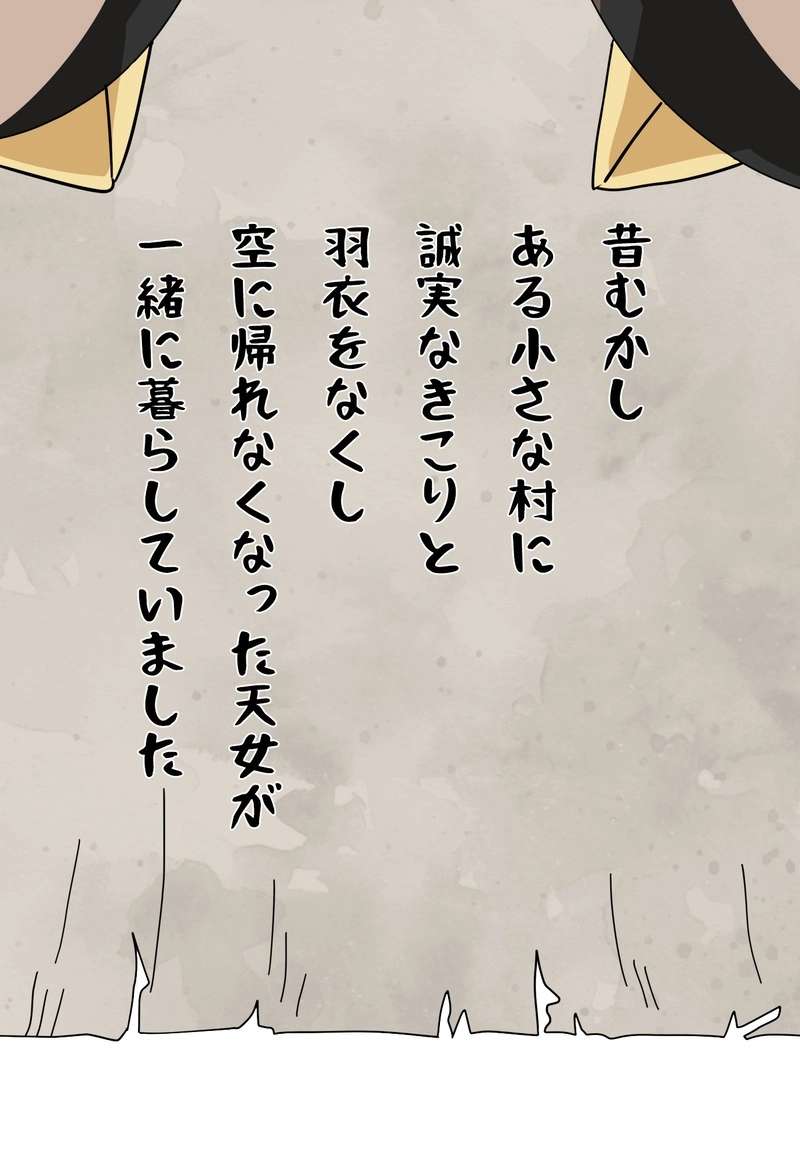 昔むかし
ある小さな村に
誠実なきこりと
羽衣をなくし
空に帰れなくなった天女が
一緒に暮らしていました